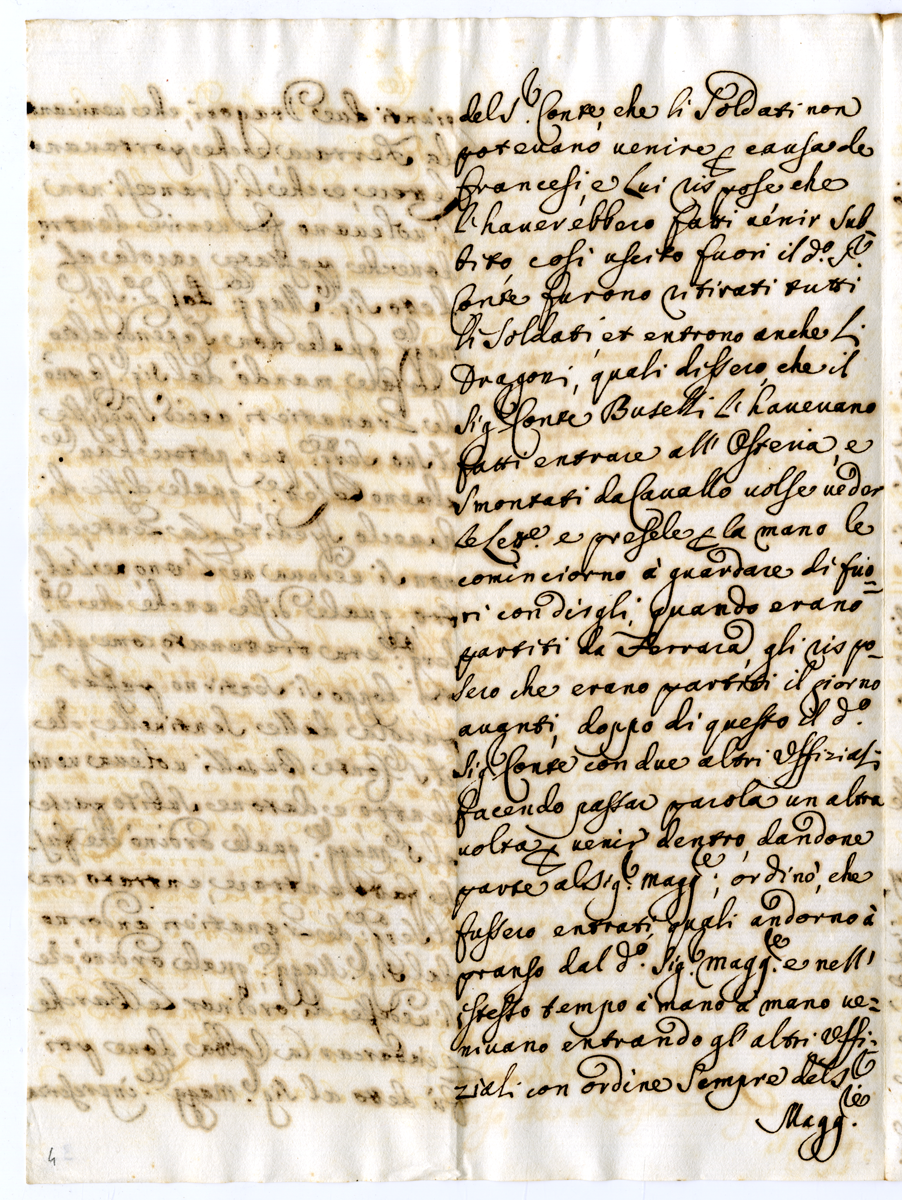 del S.r Conte, che li Soldati non
potevano venire p causa de
francesi, e Lui rispose che
l'haverebbero fatti venir sub=
bito, cosi uscito fuori il d.o S.r
Conte furono ritirati tutti
li Soldati et entrono anche Li
Dragoni, quali dissero, che il
Sig.r Conte Buselli li havevano
fatti entrare all' Osteria, e
smontati da Cavallo volse veder
le Lett.e e presele p la mano le
cominciorno à guardare di fuo=
ri con dirgli, quando erano
partiti da Ferrara, gli rispo=
sero che erano partiti il giorno
avanti, doppo di questo il d.o
Sig.r Conte con due altri Offiziali
facendo passar parola un altra
volta p venir dentro, dandone
parte al Sig.r Magg.re; ordinò, che
fussero entrati, quali andorno à
pranso dal d.o Sig.r Magg.re e nell'
istesso tempo à mano à mano ve=
nivano entrando gl'altri Offi=
ziali con ordine Sempre del S.r
Magg.re
4